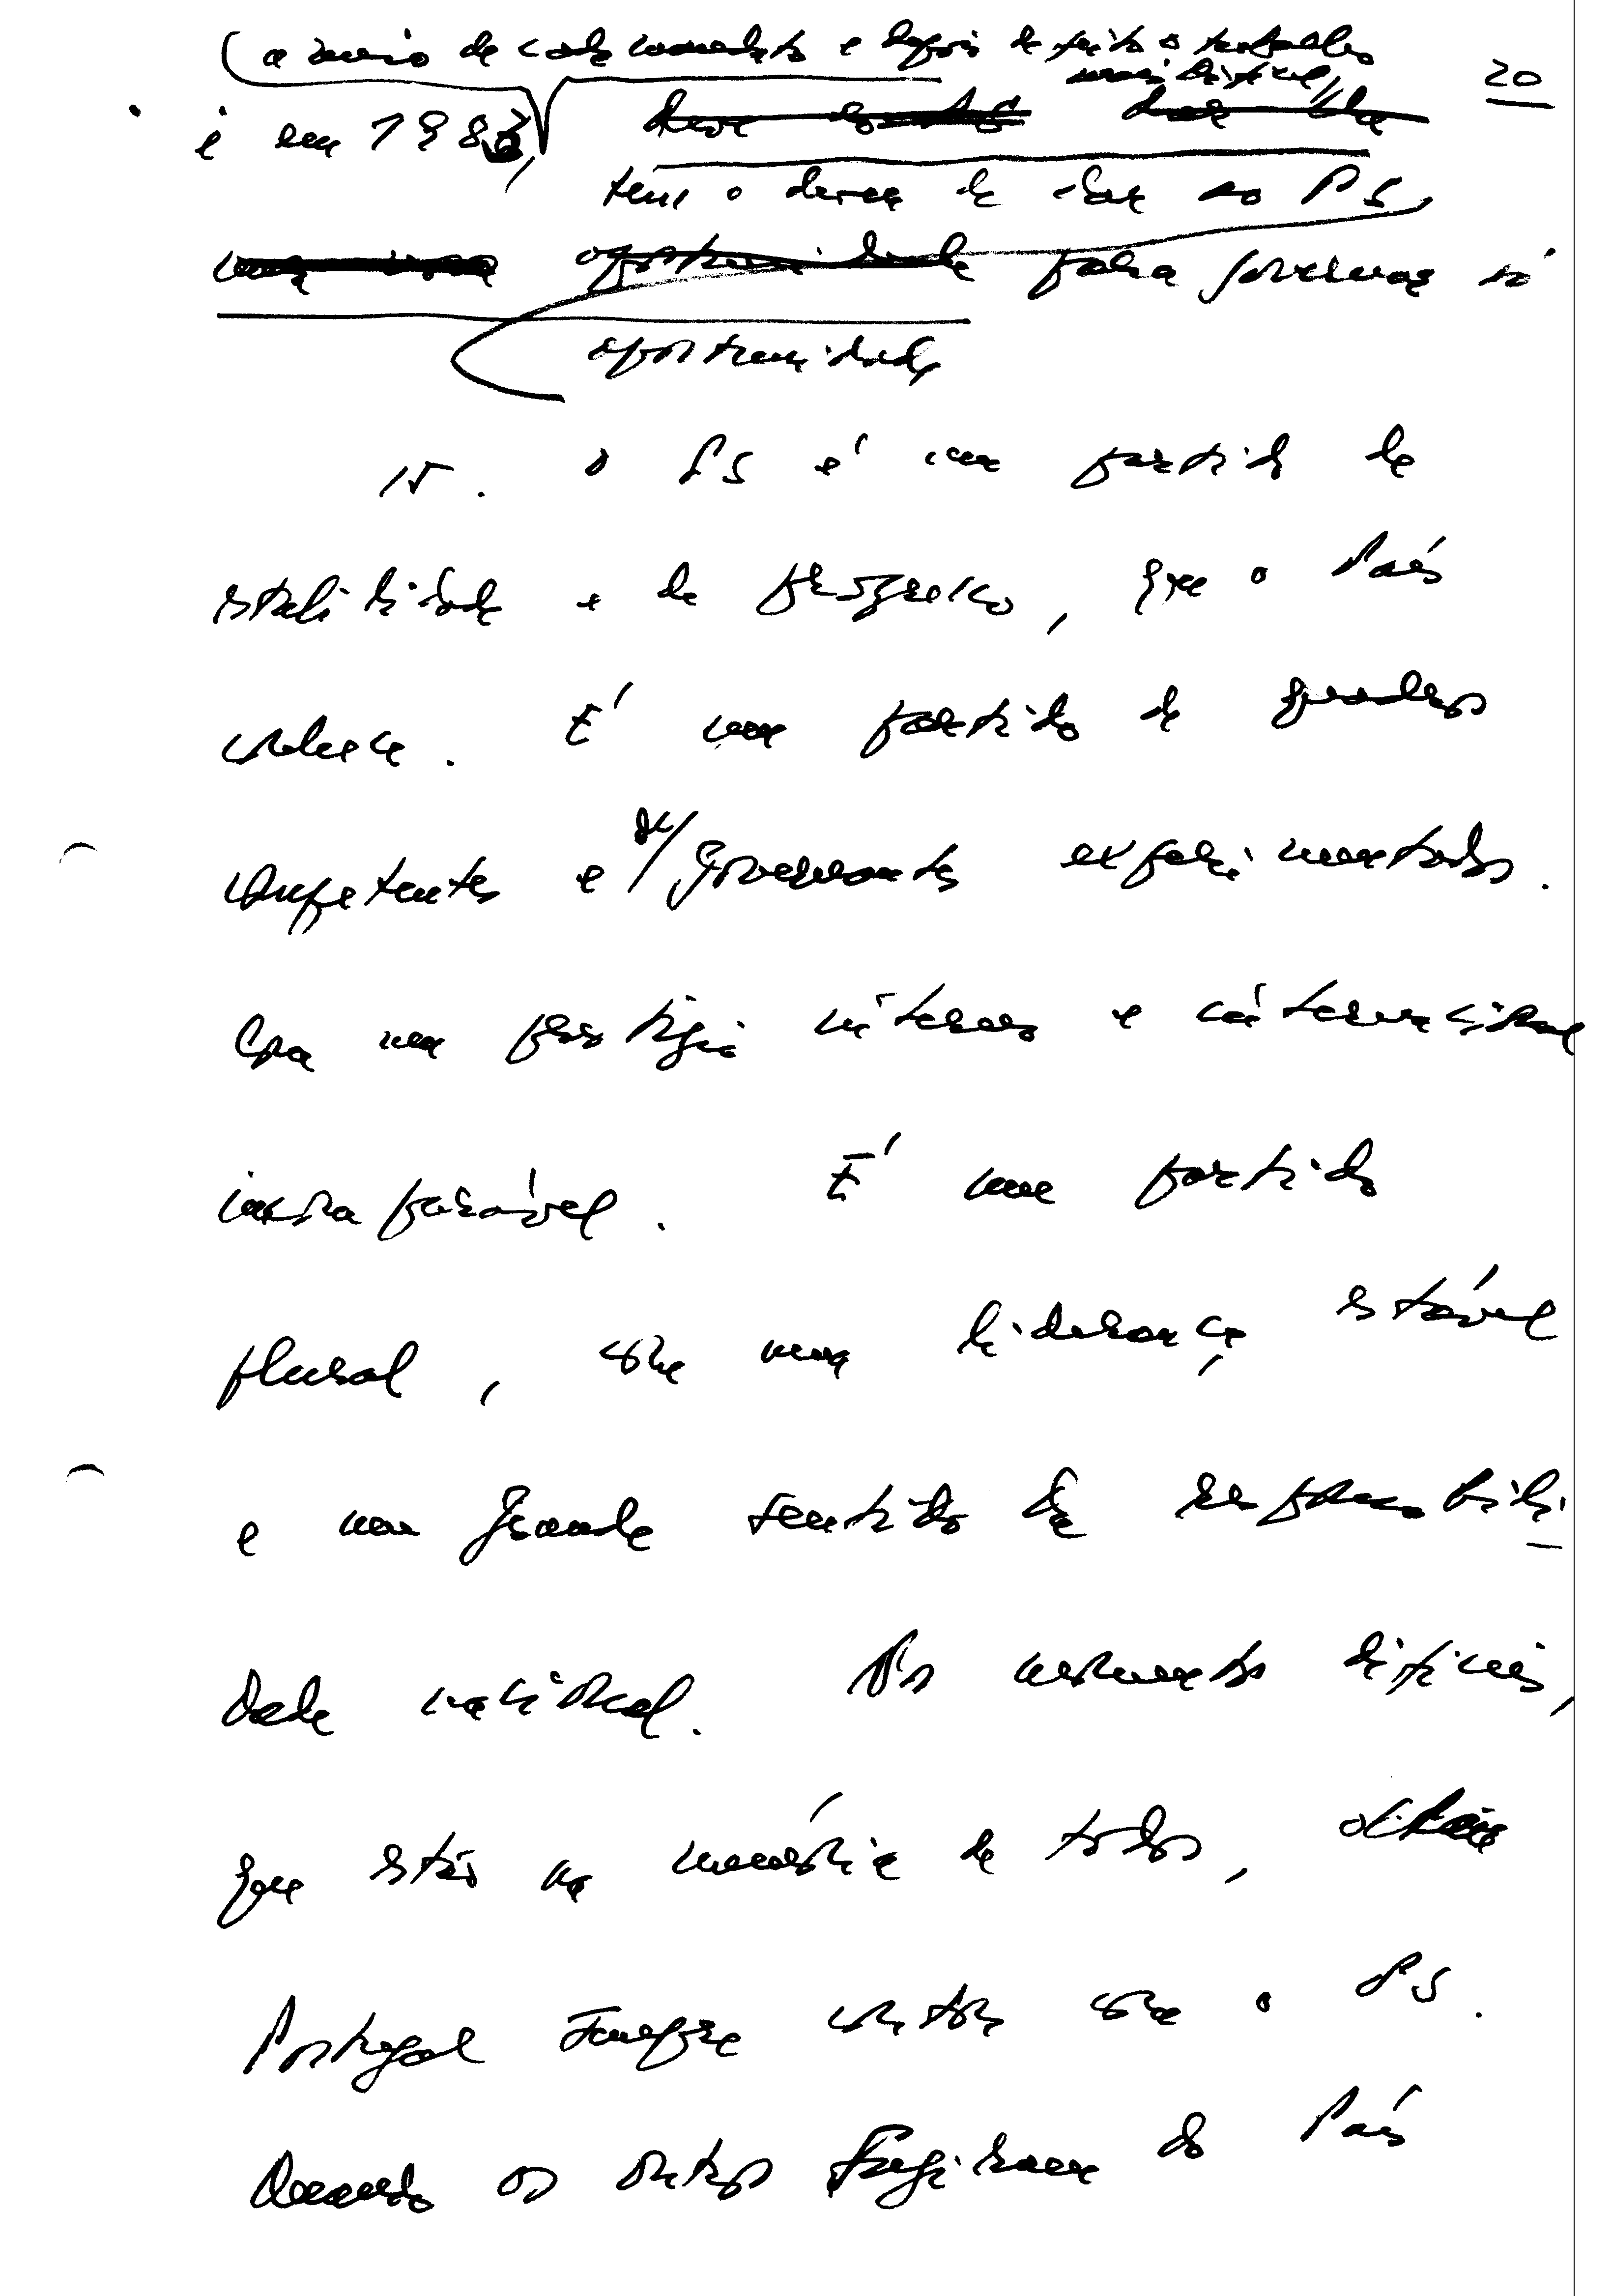 a meio de cada mandato e depois de feito o trabalho
mais difícil, 20
e em 1983,
tem o dever de dar ao PS,
oportunidade para governar só
oportunidade
15. O PS é um partido de
estabilidade e de progresso, que o País
conhece. É um partido de quadros
competentes e de governantes experimentados.
Com um prestígio interno e internacional
incomparável. É um partido
plural, com uma liderança estável
e um grande sentido de responsabili-
dade nacional. Nos momentos difíceis,
que estão na memória de todos,
Portugal sempre contou com o PS.
Quando os outros fugiram do País